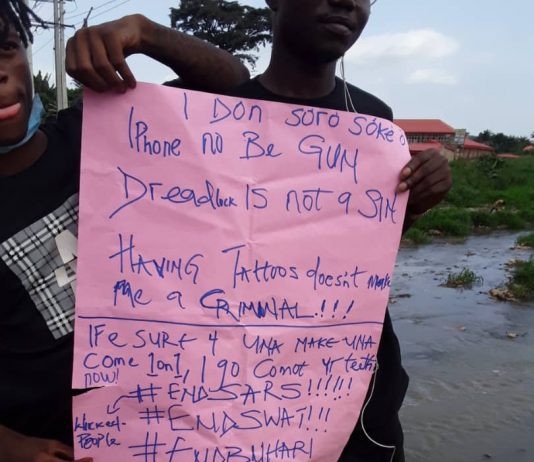 I DON SORO SOKE O
IPHONE NO Be GUN
Dreadlock IS not a SIN
HAVING Tattoos doesn't Make
Me a CRIMINAL.!!!
IFe SURE 4 UNA MAKE UNA
come 1on1, I go comot yr teeth
now!
#ENDSARS!!!!!!
#ENDSWAT!!!
Wicked
People
#ENDBUHARI